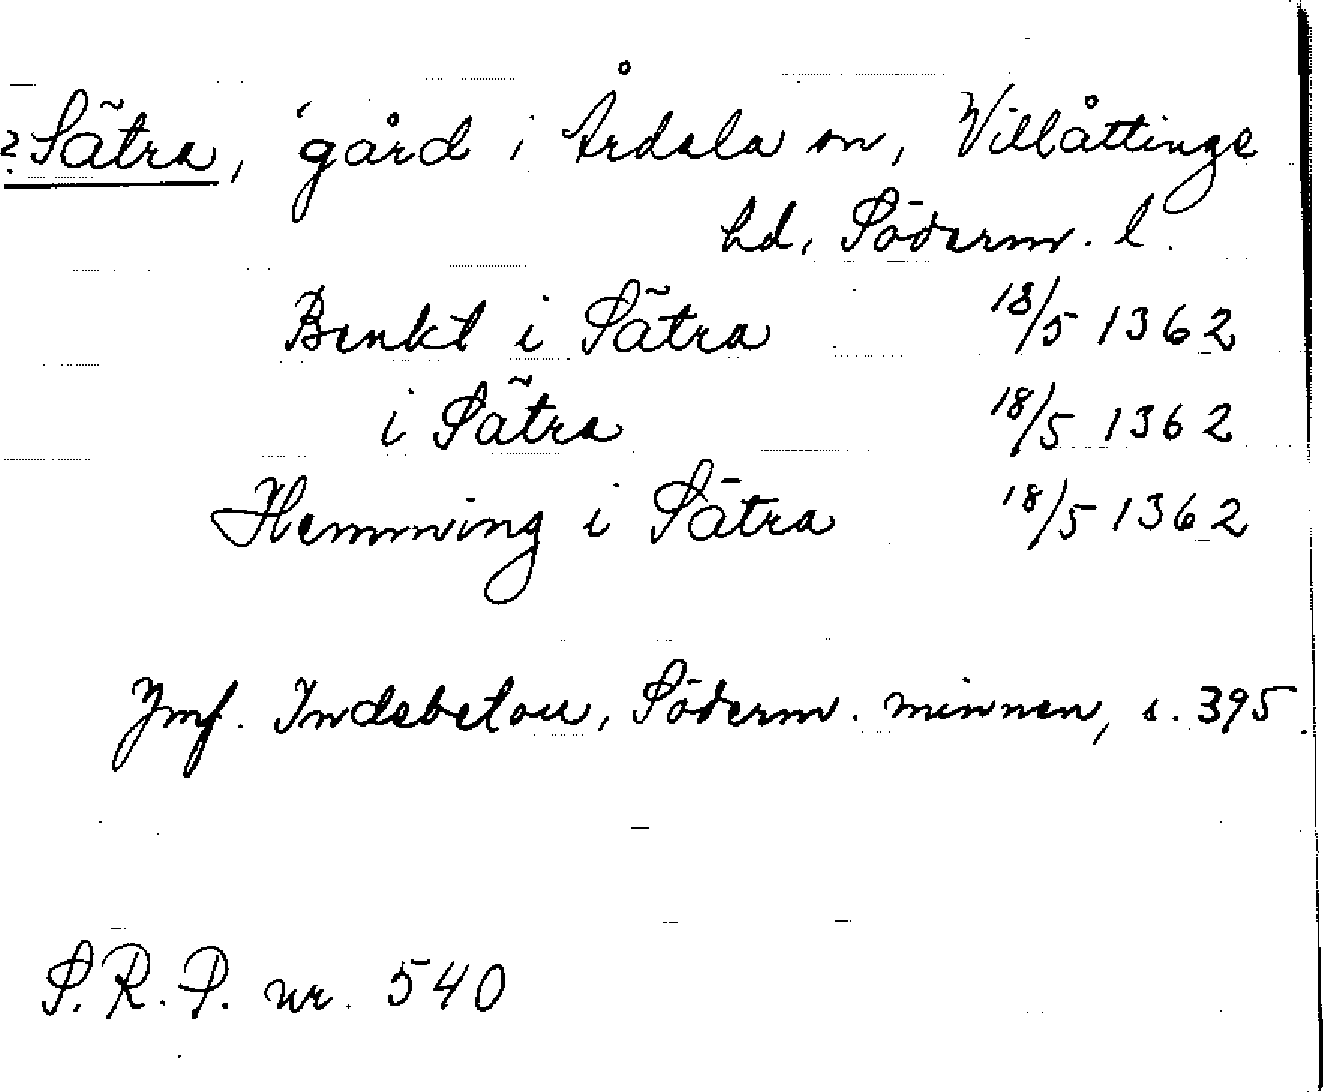 ? Sätra, gård i Årdala sn, Villåttinge
hd, Söderm. l.
Benkt i Sätra 18/5 1362
i Sätra 18/5 1362
Hemming i Sätra 18/5 1362
Jmf. Indebetou, Söderm. minnen, s. 395.
S.R.P. nr. 540